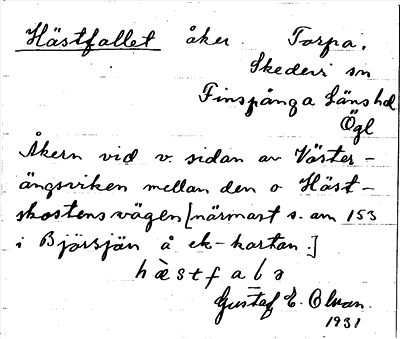 Hästfallet åker. Torpa.
Skedevi sn
Finspånga Länshd
Ögl
Åkern vid v. sidan av Väster-
ängsviken mellan den o Häst-
skostensvägen [närmast s. om 153
i Björsjön å ek-kartan.]
hæ̀stfalə
Gustaf E. Olvan.
1931